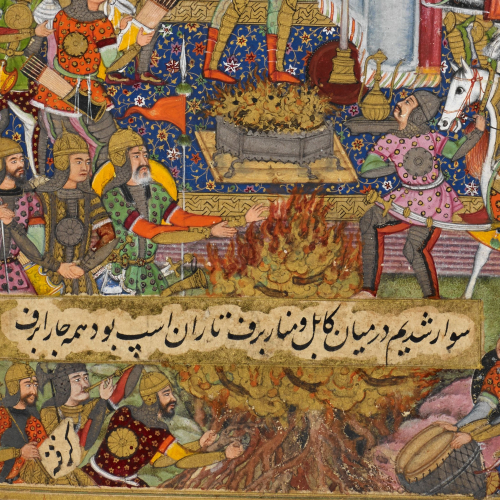 سوار شدیم درمیان کابل و منار برف تا ران اسپ بود همه جا را برف
گرفته